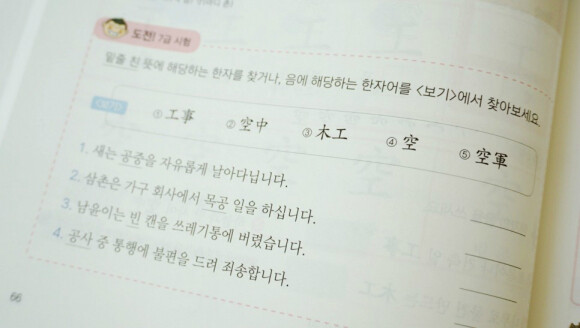 도전! 7급 시험
밑줄 친 뜻에 해당하는 한자를 찾거나, 음에 해당하는 한자어를 <보기>에서 찾아보세요.
보기 ① 工事 ② 空中 ③ 木工 ④ 空 ⑤ 空軍
1. 새는 공중을 자유롭게 날아다닙니다.
2. 삼촌은 가구 회사에서 목공 일을 하십니다.
3. 남윤이는 빈 캔을 쓰레기통에 버렸습니다.
4. 공사 중 통행에 불편을 드려 죄송합니다.
66